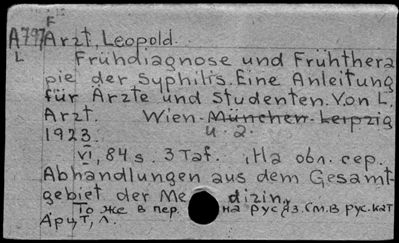 F
A797 Arzt, Leopold.
L
Frühdiagnose und Frühthera
pie der Syphilis. Eine Anleitung
für Ärzte und Studenten. Von L.
Arzt. Wien-München-Leipzig
1923. u. a.
VI, 84 s. 3 Taf. , На обл. сер.
Abhandlungen aus dem Gesamt-
gebiet der Medizin„
То же в пер. на рус яз. см. в рус. кат
Арцт, Л.